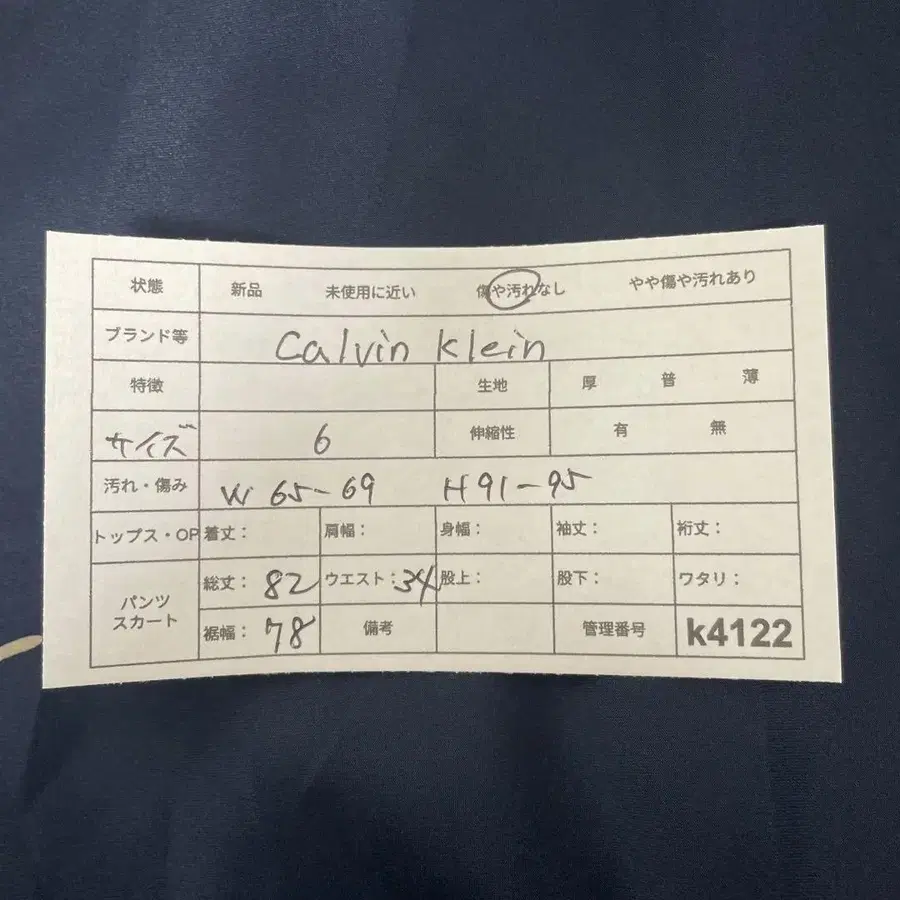 状態 新品 未使用に近い 傷や汚れなし やや傷や汚れあり
ブランド等 Calvin Klein
特徴 生地 厚 普 薄
サイズ 6 伸縮性 有 無
汚れ・傷み W 65-69 H 91-95
トップス・OP 着丈: 肩幅: 身幅: 袖丈: 裄丈:
パンツ スカート 総丈: 82 ウエスト: 34 股上: 股下: ワタリ:
裾幅: 78 備考 管理番号 k4122